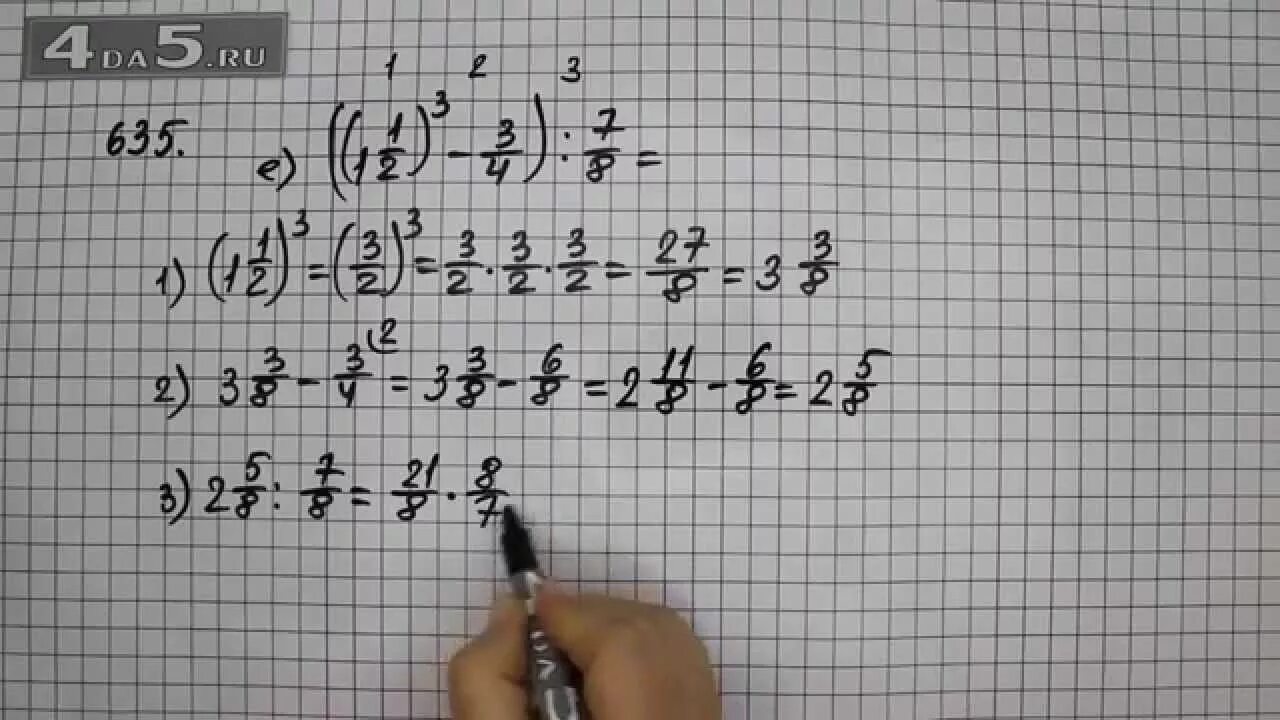 4DA5.RU
1 2 3
635. е) ((1 1/2)³ - 3/4) : 7/8 =
1) (1 1/2)³ = (3/2)³ = 3/2 · 3/2 · 3/2 = 27/8 = 3 3/8
2) 3 3/8 - 3/4 ⁽² = 3 3/8 - 6/8 = 2 11/8 - 6/8 = 2 5/8
3) 2 5/8 : 7/8 = 21/8 · 8/7